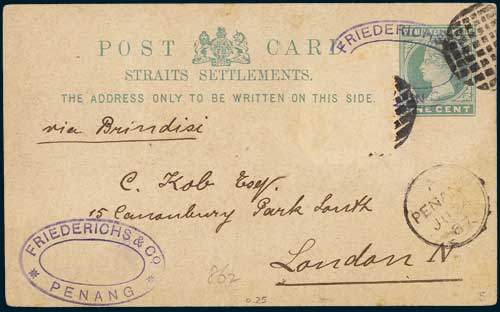 POST CARD
STRAITS SETTLEMENTS.
THE ADDRESS ONLY TO BE WRITTEN ON THIS SIDE.
FRIEDERICHS
ONE CENT
via Brindisi
C. Kob Esq.
15 Canonbury Park South
London N
PENANG
FRIEDERICHS & Co
PENANG
862
0.25